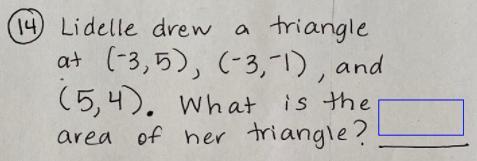 14 Lidelle drew a triangle
at (-3,5), (-3,-1), and
(5,4). What is the
area of her triangle?